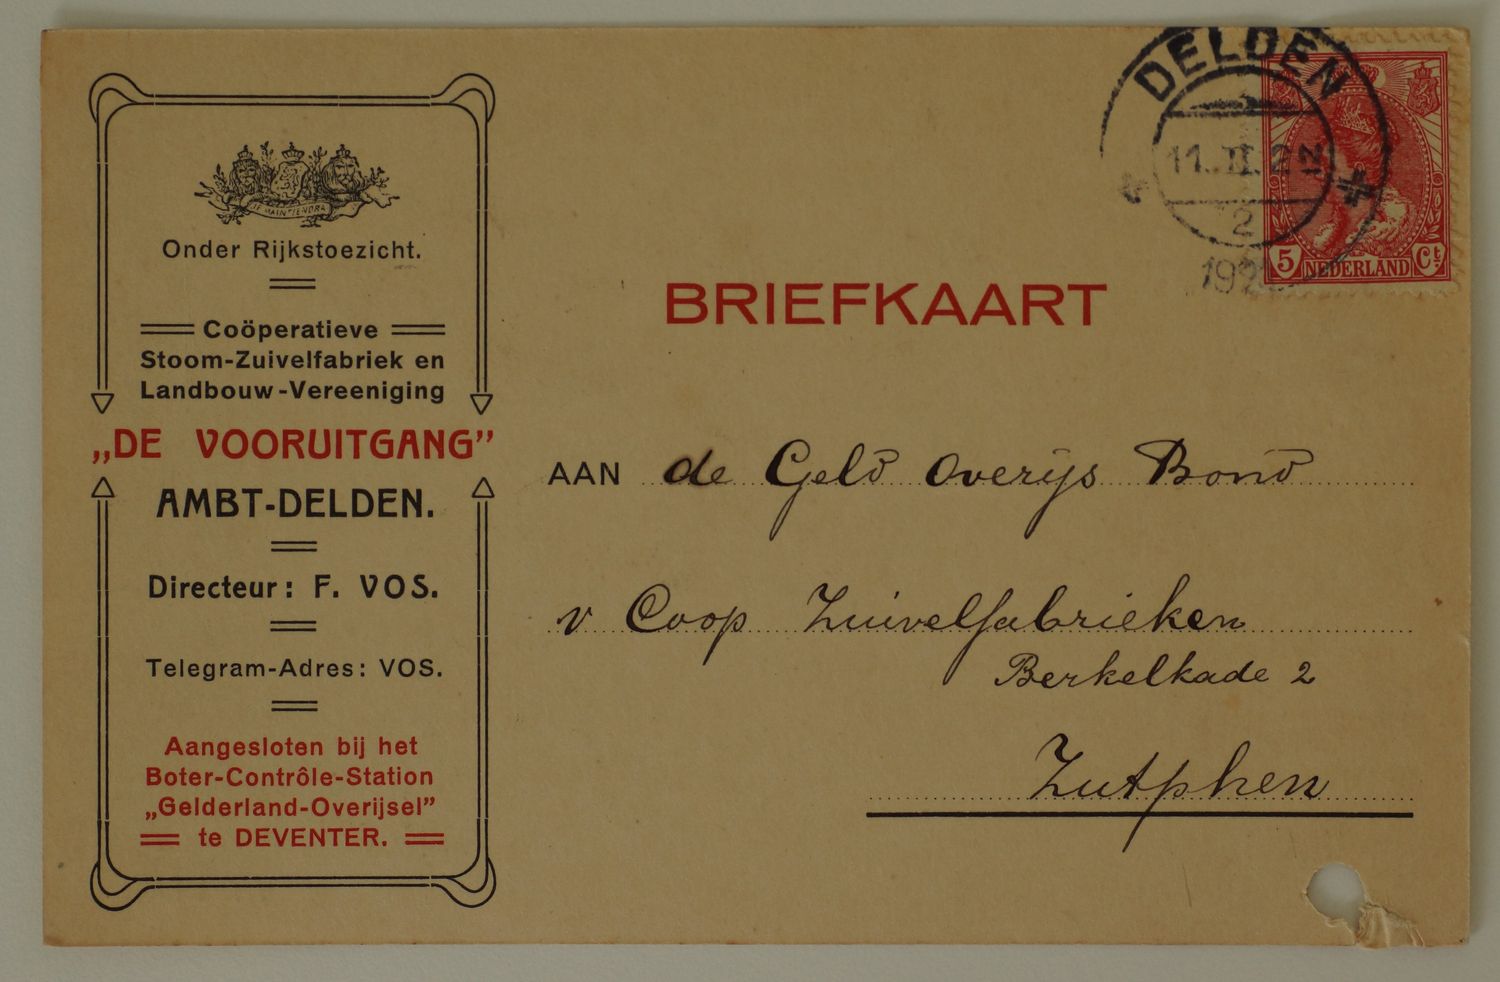 JE MAINTIENDRAI
Onder Rijkstoezicht.
Coöperatieve
Stoom-Zuivelfabriek en
Landbouw-Vereeniging
„DE VOORUITGANG”
AMBT-DELDEN.
Directeur: F. VOS.
Telegram-Adres: VOS.
Aangesloten bij het
Boter-Contrôle-Station
„Gelderland-Overijsel”
te DEVENTER.
DELDEN
11.II.2 2N
2
5 NEDERLAND Ct
BRIEFKAART
AAN de Geld Overijs Bond
v Coop Zuivelfabrieken
Berkelkade 2
Zutphen